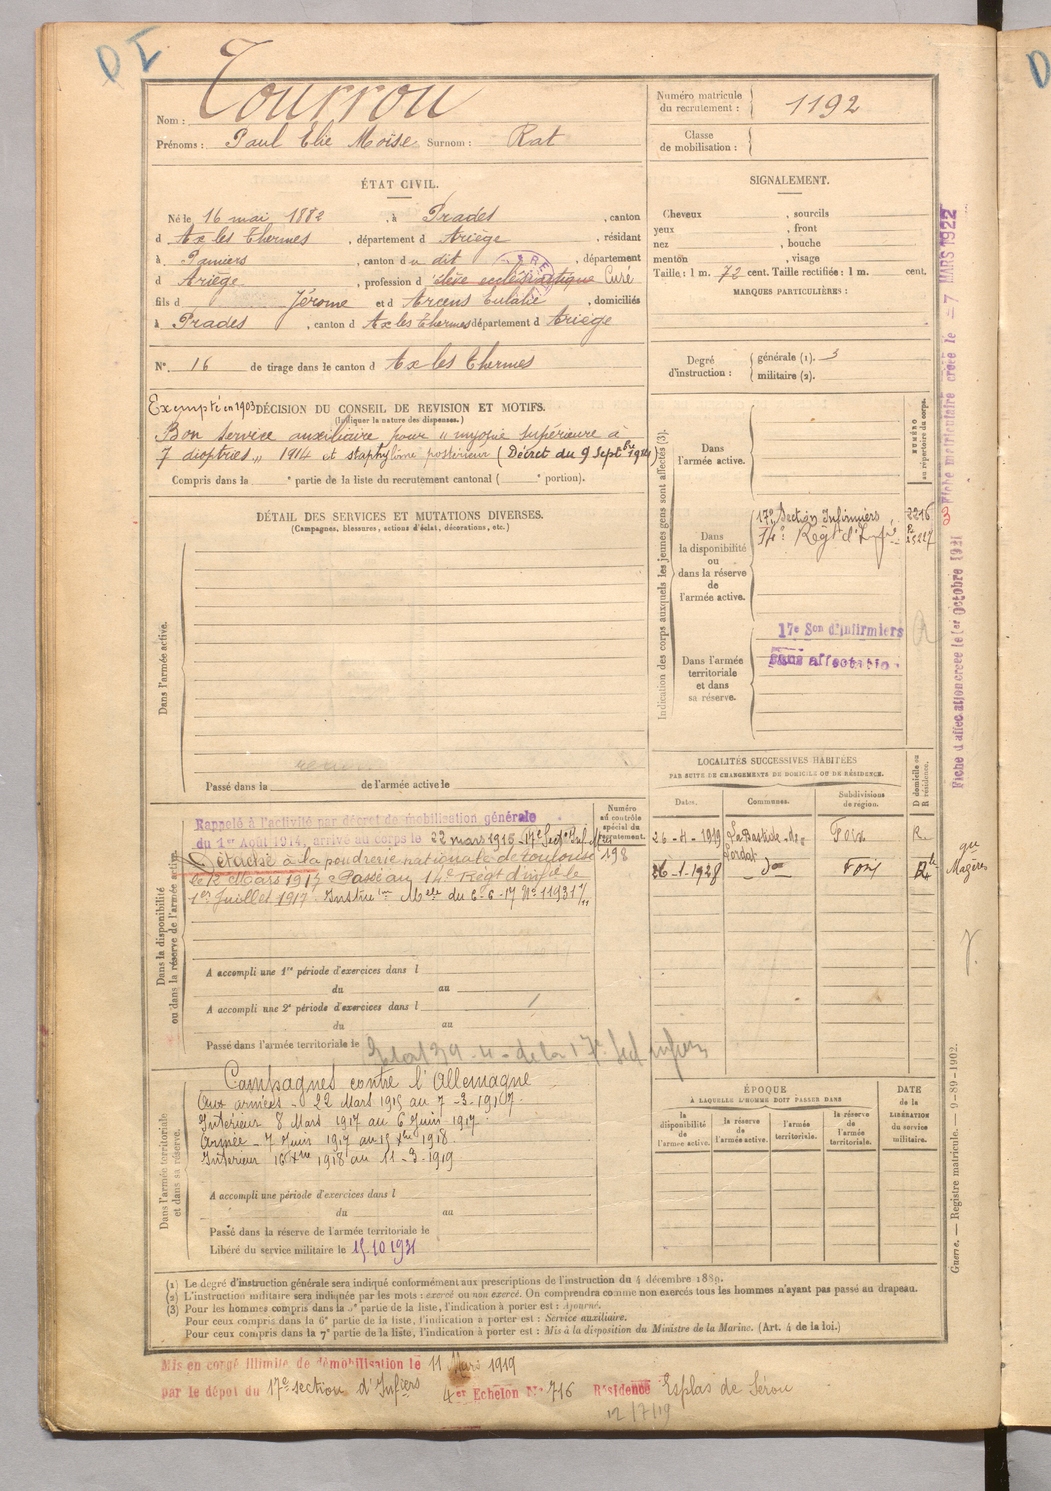 D I
Nom : Tourrou
Prénoms : Paul Elie Moïse Surnom : Rat
Numéro matricule du recrutement : 1192
Classe de mobilisation :
ÉTAT CIVIL.
Né le 16 mai 1882, à Prades, canton
d Ax les Thermes, département d Ariège, résidant
à Pamiers, canton du dit, département
d Ariège, profession d élève ecclésiastique Curé
fils d Jérome et d Arcens Eulalie, domiciliés
à Prades, canton d Ax les Thermes département d Ariège
N° 16 de tirage dans le canton d Ax les Thermes
SIGNALEMENT.
Cheveux , sourcils
yeux , front
nez , bouche
menton , visage
Taille : 1 m. 72 cent. Taille rectifiée : 1 m. cent.
MARQUES PARTICULIÈRES :
Degré d'instruction : générale (1). 3
militaire (2).
Exempté en 1903 DÉCISION DU CONSEIL DE REVISION ET MOTIFS.
(Indiquer la nature des dispenses.)
Bon service auxiliaire pour " myopie supérieure à
7 dioptries " 1914 et staphylôme postérieur (Décret du 9 Septbre 1914)
Compris dans la e partie de la liste du recrutement cantonal ( e portion).
DÉTAIL DES SERVICES ET MUTATIONS DIVERSES.
(Campagnes, blessures, actions d'éclat, décorations, etc.)
Dans l'armée active.
Passé dans la de l'armée active le
Indication des corps auxquels les jeunes gens sont affectés (3).
NUMÉRO au répertoire du corps.
Dans l'armée active.
Dans la disponibilité ou dans la réserve de l'armée active.
17e Section Infirmiers 2216
14e Régt d'Infie
Dans l'armée territoriale et dans sa réserve.
17e Son d'Infirmiers
Sans affectation
LOCALITÉS SUCCESSIVES HABITÉES
PAR SUITE DE CHANGEMENTS DE DOMICILE OU DE RÉSIDENCE.
Dates. Communes. Subdivisions de région. D domicile ou R résidence.
26-4-1919 La Bastide-de-Lordat Foix R.
26-1-1928 do Foix
Mazères
Dans la disponibilité ou dans la réserve de l'armée active.
Numéro au contrôle spécial du recrutement.
198
Rappelé à l'activité par décret de mobilisation générale
du 1er Août 1914, arrivé au corps le 22 mars 1915 - 17e Secton
Détaché à la poudrerie nationale de Toulouse
le 12 Mars 1917 Passé au 14e Régt d'infie le
1er Juillet 1917. Mlle du 6-6-17 No 11931
A accompli une 1re période d'exercices dans l
du au
A accompli une 2e période d'exercices dans l
du au
Passé dans l'armée territoriale le
Dans l'armée territoriale et dans sa réserve.
Campagnes contre l'Allemagne
Aux armées - 22 Mars 1915 au 7-3-1917.
Intérieur 8 Mars 1917 au 6 Juin 1917
Armée - 7 Juin 1917 au 15 Xbre 1918
Intérieur 16 Xbre 1918 au 11-3-1919
A accompli une période d'exercices dans l
du au
Passé dans la réserve de l'armée territoriale le
Libéré du service militaire le 15-10 1931
ÉPOQUE
À LAQUELLE L'HOMME DOIT PASSER DANS
la disponibilité de l'armée active.
la réserve de l'armée active.
l'armée territoriale.
la réserve de l'armée territoriale.
DATE de la LIBÉRATION du service militaire.
(1) Le degré d'instruction générale sera indiqué conformément aux prescriptions de l'instruction du 4 décembre 1889.
(2) L'instruction militaire sera indiquée par les mots : exercé ou non exercé. On comprendra comme non exercés tous les hommes n'ayant pas passé au drapeau.
(3) Pour les hommes compris dans la 5e partie de la liste, l'indication à porter est : Ajourné.
Pour ceux compris dans la 6e partie de la liste, l'indication à porter est : Service auxiliaire.
Pour ceux compris dans la 7e partie de la liste, l'indication à porter est : Mis à la disposition du Ministre de la Marine. (Art. 4 de la loi.)
Mis en congé illimité de démobilisation le 11 Mars 1919
par le dépôt du 17e section d'Infiers 4er Echelon No 716 Résidence Esplas de Sérou
12/7/19
Fiche d'affectation créée le 1er Octobre 1921 Fiche matriculaire créée le = 7 MARS 1922
Guerre. — Registre matricule. — 9-89-1902.